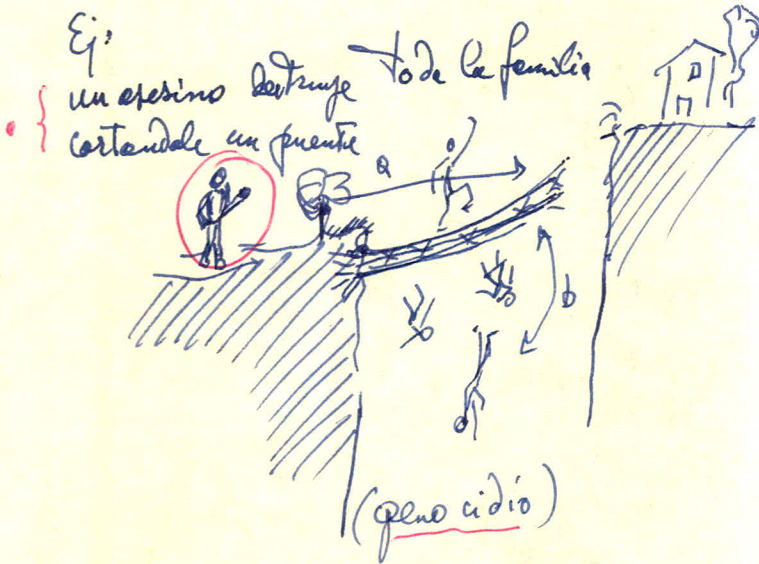 Ej:
un asesino destruye toda la familia
cortandole un puente
a
b
(genocidio)